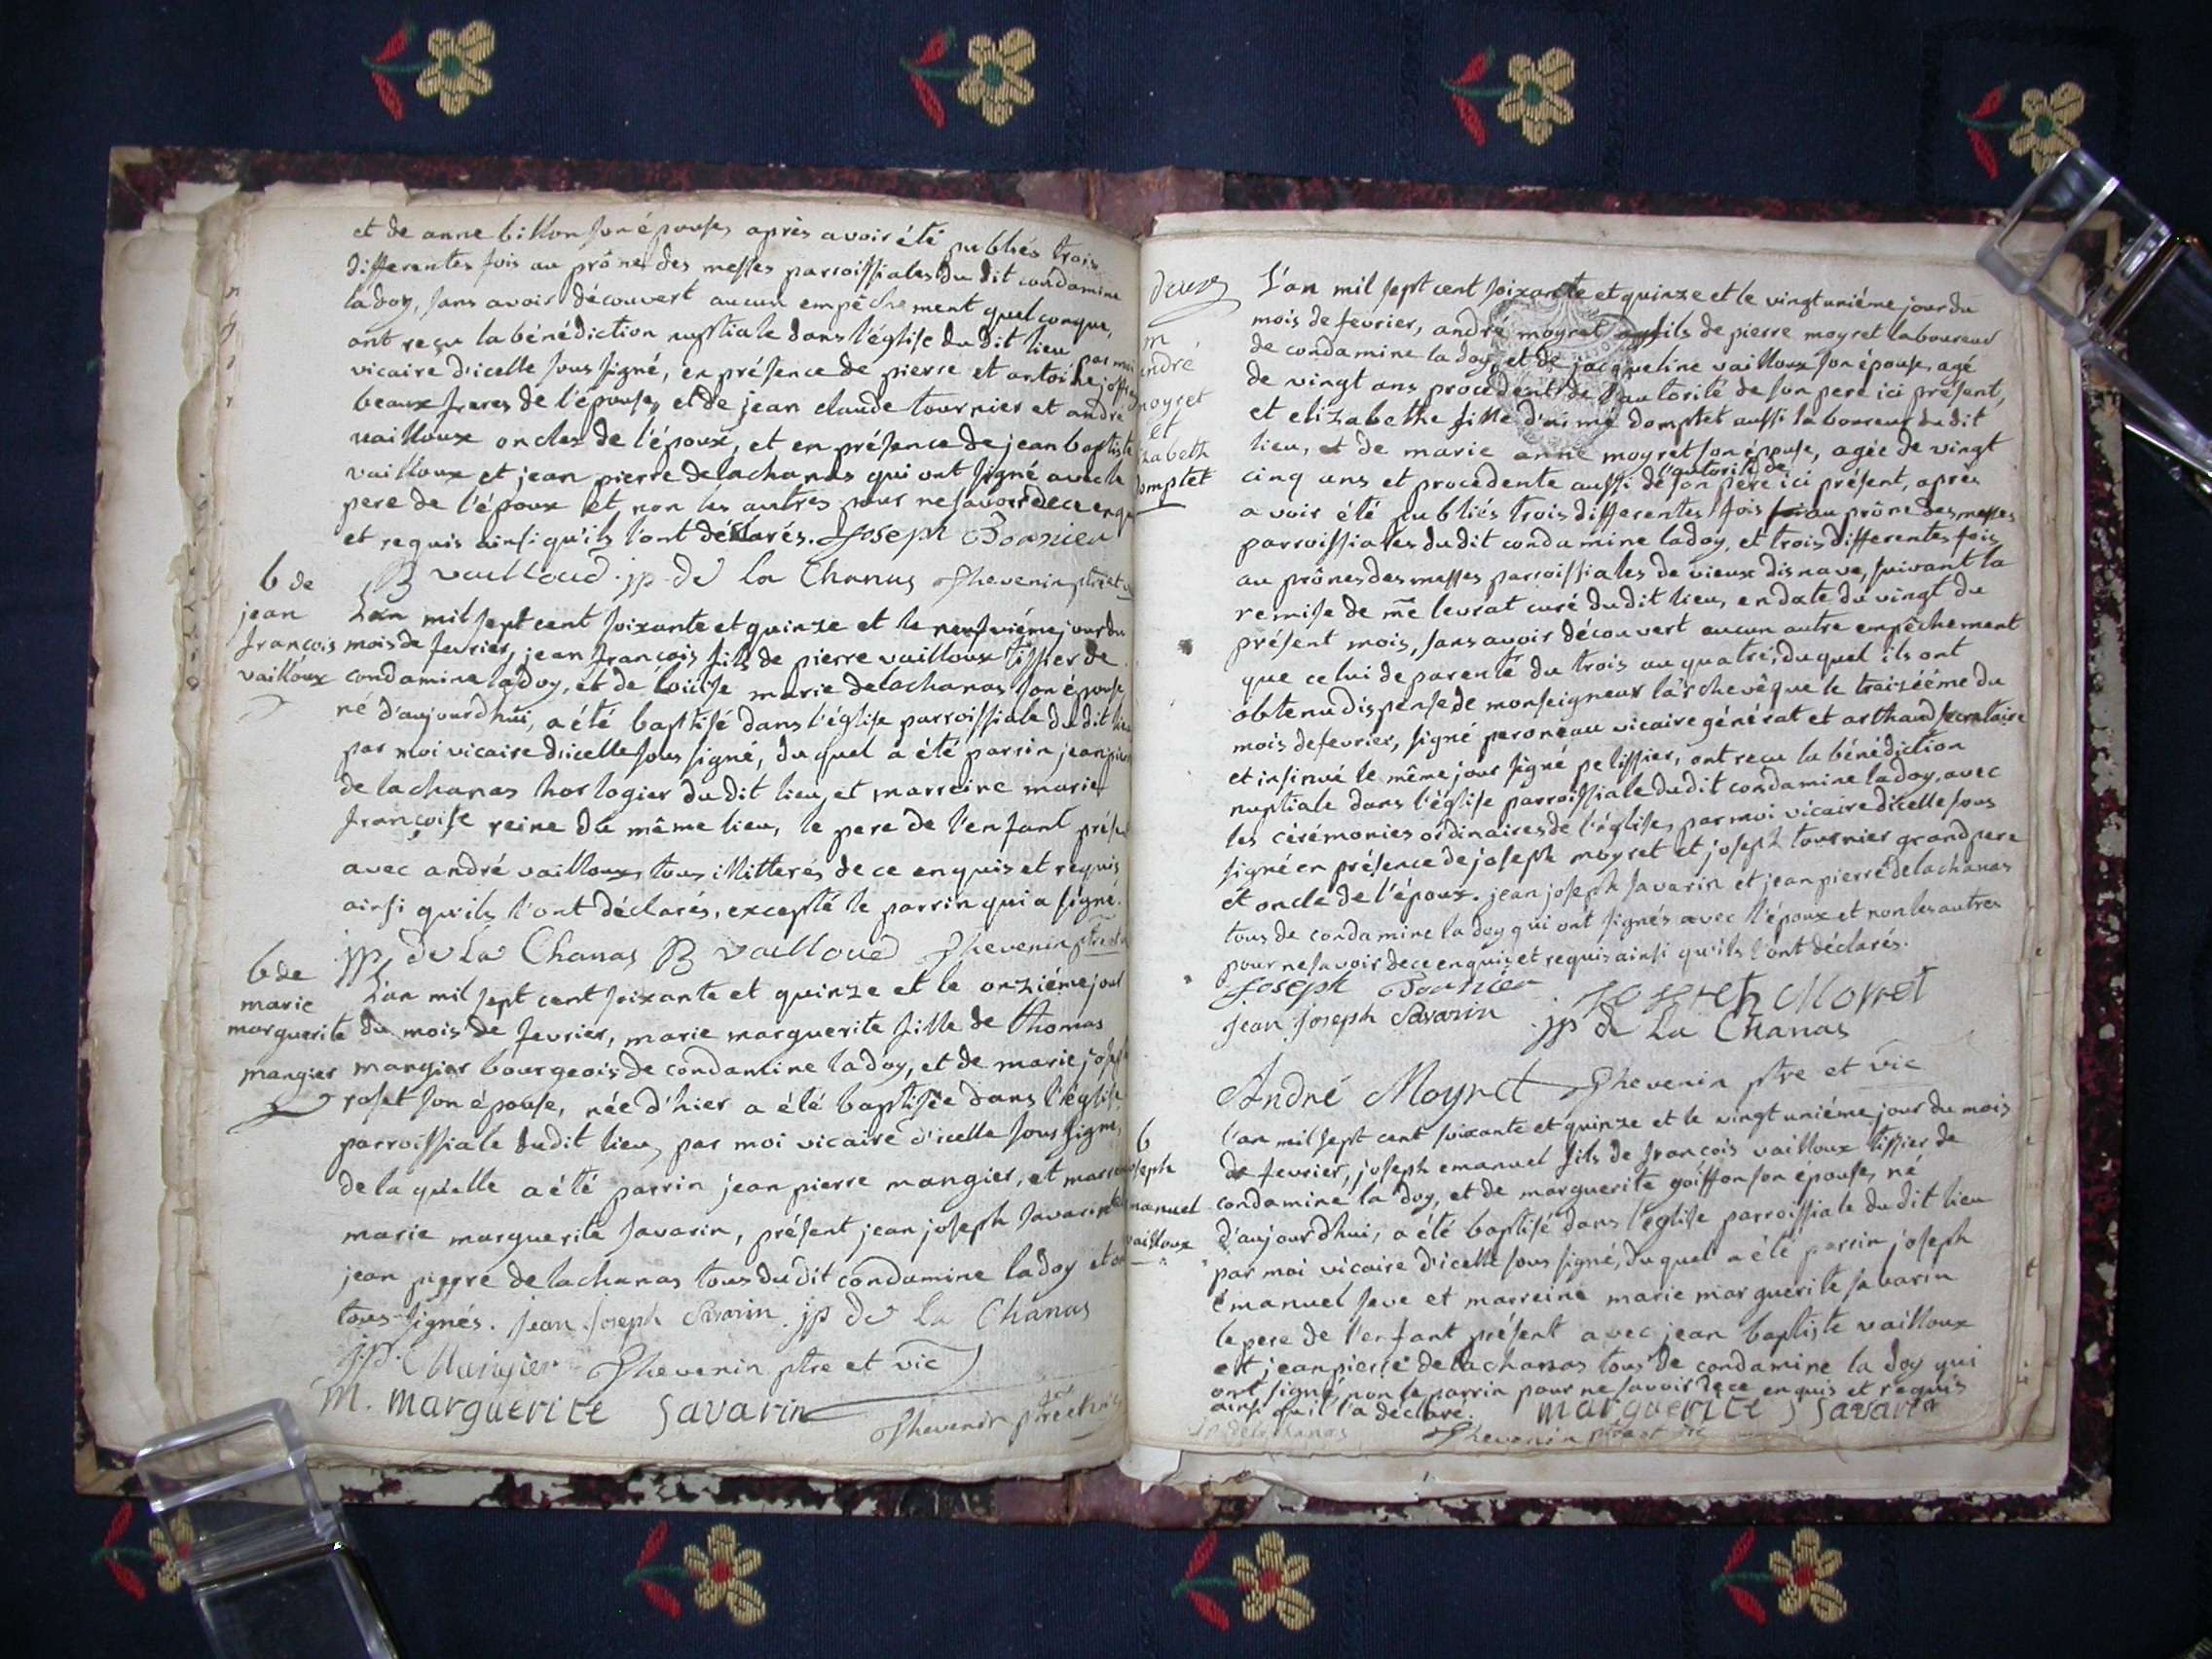 et de anne billon son épouse, après avoir été publiés trois
differentes fois au prône des messes parroissiales du dit condamine
ladoy, sans avoir découvert aucun empêchement quelconque,
ont reçu la bénédiction nuptiale dans l'église du dit lieu par moi
vicaire d'icelle sous signé, en présence de pierre et antoine
beaux freres de l'épouse, et de jean claude tournier et andré
vailloux oncles de l'époux, et en présence de jean baptiste
vailloux et jean pierre delachanas qui ont signé avec le
pere de l'époux et non les autres pour ne savoir de ce enquis
et requis ainsi qu'ils l'ont déclarés. Joseph Tournier
B vailloud jp de la Chanas Thevenin ptre et
b de
jean
françois
vailloux
L'an mil sept cent soixante et quinze et le neufviéme jour du
mois de fevrier, jean françois fils de pierre vailloux tissier de
condamine ladoy, et de louise marie delachanas son épouse
né d'aujourdhui, a été baptisé dans l'église parroissiale du dit lieu
par moi vicaire d'icelle sous signé, duquel a été parrin jean pierre
delachanas horlogier du dit lieu, et marreine marie
françoise reine du même lieu, le pere de l'enfant présent
avec andré vailloux, tous illitterés de ce enquis et requis
ainsi qu'ils l'ont déclarés, excepté le parrin qui a signé.
jp de La Chanas B vailloud Thevenin ptre et
b de
marie
marguerite
mangier
L'an mil sept cent soixante et quinze et le onziéme jour
du mois de fevrier, marie marguerite fille de thomas
mangier bourgeois de condamine ladoy, et de marie joseph
roset son épouse, née d'hier a été baptisée dans l'église
parroissiale dudit lieu, par moi vicaire d'icelle sous signé,
de laquelle a été parrin jean pierre mangier, et marreine
marie marguerite savarin, présent jean joseph savarin
jean pierre delachanas tous du dit condamine ladoy et ont
tous signés. jean joseph Savarin. jp de La Chanas
j.p. Mangier Thevenin ptre et vic
m. marguerite savarin
Thevenin ptre et vic
deuzs
m
andré
moyret
et
izabeth
domptet
L'an mil sept cent soixante et quinze et le vingt uniéme jour du
mois de fevrier, andré moyret fils de pierre moyret laboureur
de condamine ladoy, et de jacqueline vailloux son épouse, agé
de vingt ans procedent de l'autorité de son pere ici présent,
et elizabethe fille d'aimé domptet aussi laboureur du dit
lieu, et de marie anne moyret son épouse, agée de vingt
cinq ans et procedente aussi de l'autorité de son pere ici présent, après
avoir été publiés trois differentes fois au prône des messes
parroissiales du dit condamine ladoy, et trois differentes fois
au prônes des messes parroissiales de vieux disnave, suivant la
remise de me levrat curé du dit lieu, en date du vingt du
présent mois, sans avoir découvert aucun autre empêchement
que celui de parenté du trois au quatre, duquel ils ont
obtenu dispense de monseigneur l'archevêque le traiziéme du
mois de fevrier, signé peroneau vicaire général et arthaud secretaire
et insinué le même jour signé pelissier, ont reçu la bénédiction
nuptiale dans l'église parroissiale du dit condamine ladoy, avec
les cérémonies ordinaires de l'église, par moi vicaire d'icelle sous
signé en présence de joseph moyret et joseph tournier grand pere
et oncle de l'époux. jean joseph savarin et jean pierre delachanas
tous de condamine ladoy qui ont signés avec l'époux et non les autres
pour ne savoir de ce enquis et requis ainsi qu'ils l'ont déclarés.
Joseph Tournier Joseph Moyret
Jean Joseph Savarin jp de La Chanas
André Moyret Thevenin ptre et vic
b
joseph
emanuel
vailloux
l'an mil sept cent soixante et quinze et le vingt uniéme jour du mois
de fevrier, joseph emanuel fils de françois vailloux tissier de
condamine la doy, et de marguerite goiffon son épouse, né
d'aujourdhui, a été baptisé dans l'église parroissiale du dit lieu
par moi vicaire d'icelle sous signé, duquel a été parrin joseph
emanuel seve et marreine marie marguerite savarin
le pere de l'enfant présent avec jean baptiste vailloux
et jean pierre delachanas tous de condamine la doy qui
ont signé, non le parrin pour ne savoir de ce enquis et requis
ainsi qu'il l'a déclaré. marguerite Savarin
jp delachanas Thevenin ptre et vic